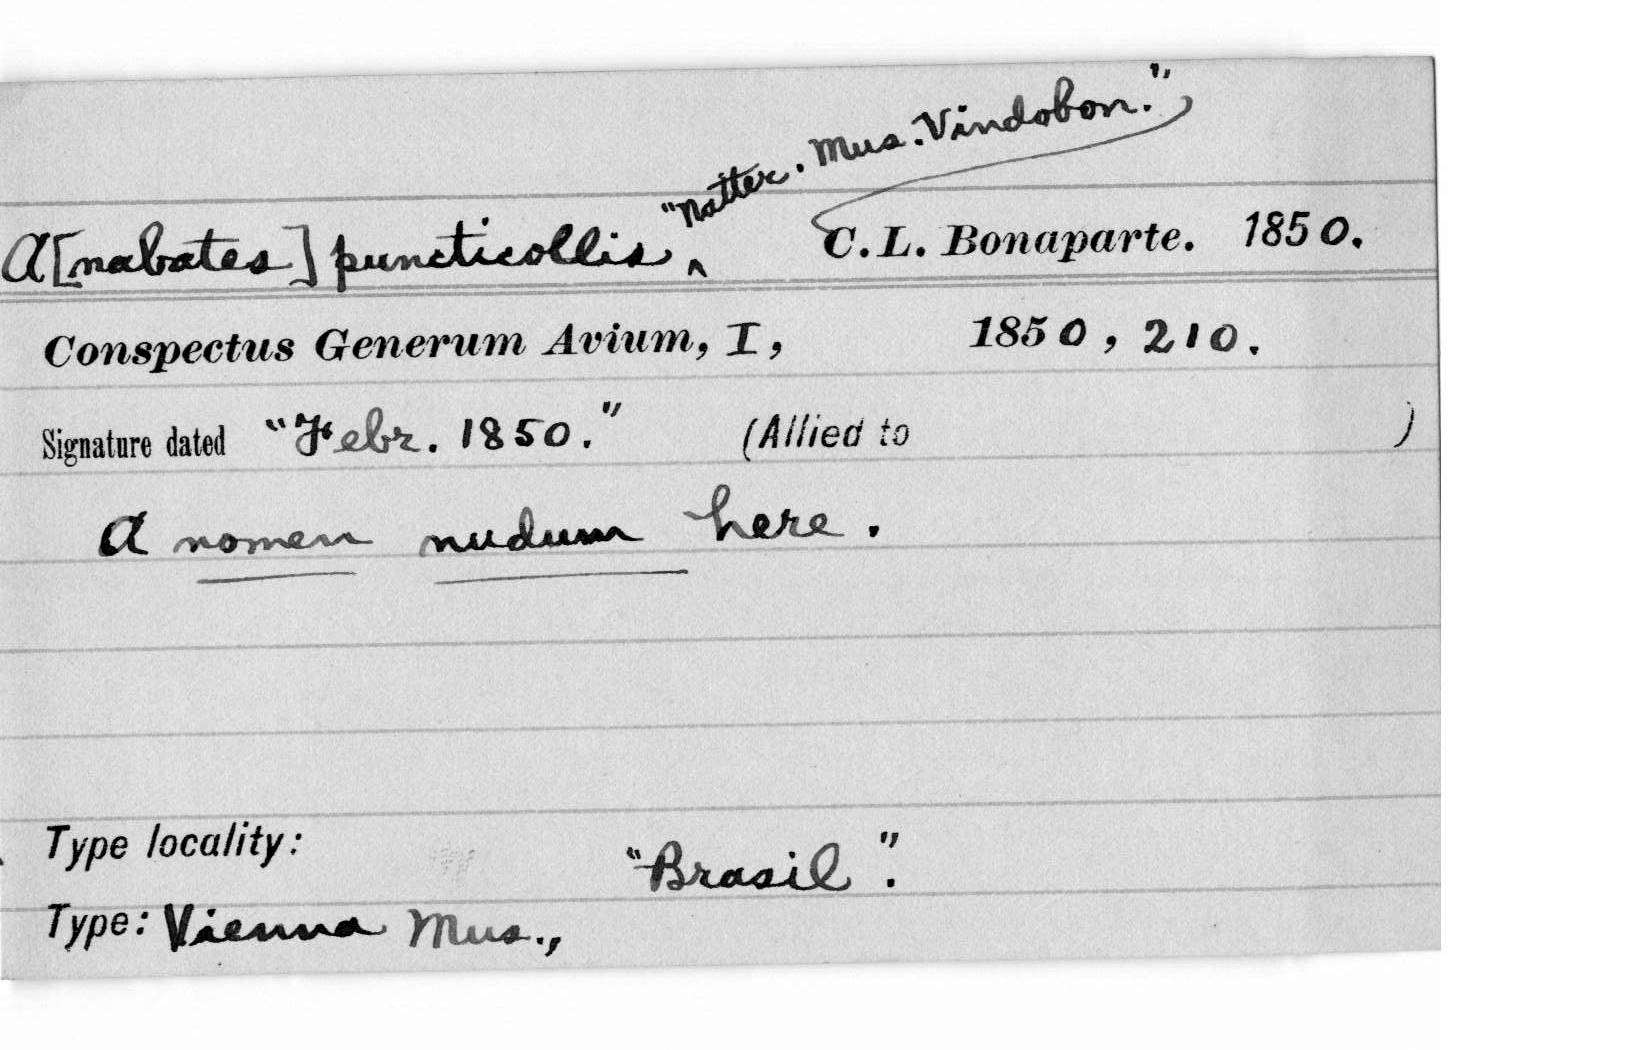 "Natter. Mus. Vindobon."
A[nabates] puncticollis ^ C. L. Bonaparte. 1850.
Conspectus Generum Avium, I, 1850, 210.
Signature dated "Febr. 1850." (Allied to )
A nomen nudum here.
Type locality: "Brasil".
Type: Vienna Mus.,